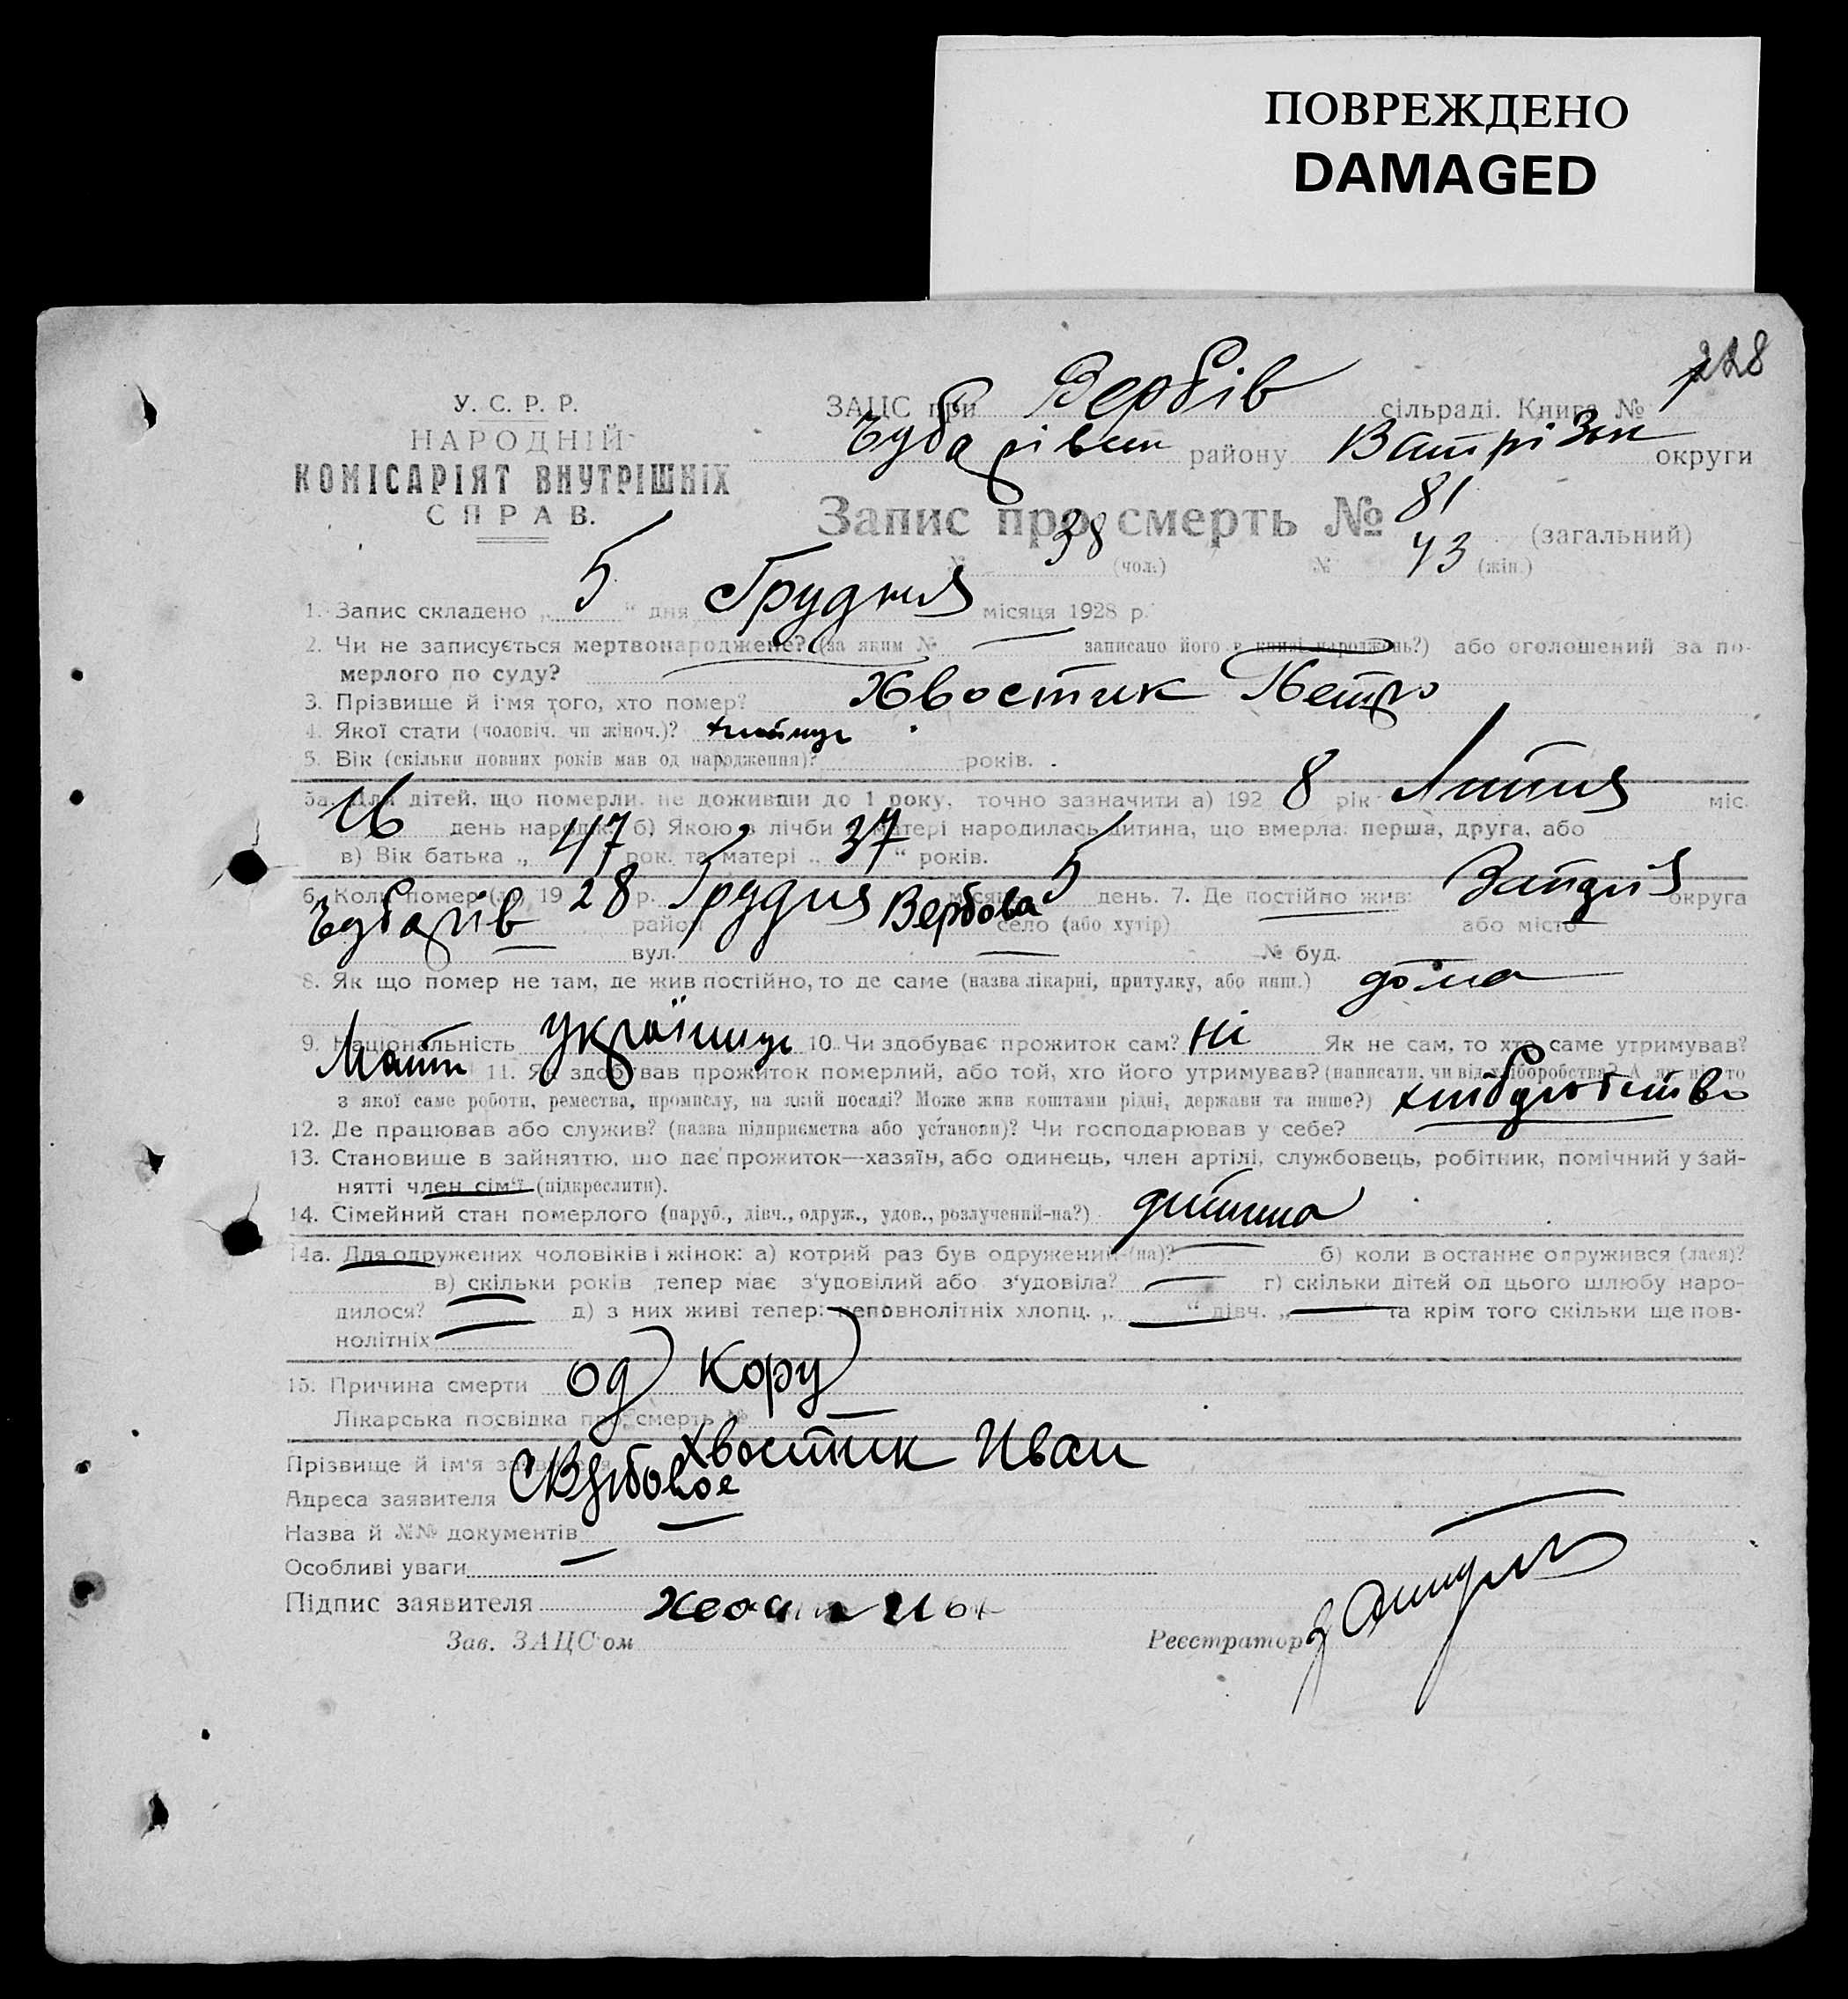 ПОВРЕЖДЕНО
DAMAGED
228
У. С. Р. Р.
НАРОДНІЙ
КОМІСАРІЯТ ВНУТРІШНІХ
СПРАВ.
ЗАЦС при Вербів сільраді. Книга №
Чубарівськ району округи
Запис про смерть № 81 (загальний)
№ 38 (чол.) № 43 (жін.)
1. Запис складено „ 5 “ дня Грудня місяця 1928 р.
2. Чи не записується мертвонароджене? (за яким № — записано його в книзі народжень?) або оголошений за по-
мерлого по суду? —
3. Прізвище й ім'я того, хто помер? Хвостик Петро
4. Якої стати (чоловіч. чи жіноч.)?
5. Вік (скільки повних років мав од народження)? років.
5а. Для дітей, що померли, не доживши до 1 року, точно зазначити а) 192 8 рік Липня міс.
16 день народж. б) Якою з лічби у матері народилась дитина, що вмерла: перша, друга, або
в) Вік батька „ 47 рок. та матері „ 37 “ років.
6. Коли помер (ла) 19 28 р. Грудня місяця 5 день. 7. Де постійно жив: округа
Чубарів район Вербова село (або хутір) або місто
вул. — № буд.
8. Як що помер не там, де жив постійно, то де саме (назва лікарні, притулку, або инш.) дома
9. Національність українець 10. Чи здобуває прожиток сам? Ні Як не сам, то хто саме утримував?
Мати 11. Як здобував прожиток померлий, або той, хто його утримував? (написати, чи від хліборобства? А як ні, то
з якої саме роботи, ремества, промислу, на якій посаді? Може жив коштами рідні, держави та инше?) хліборобство
12. Де працював або служив? (назва підприємства або установи)? Чи господарював у себе?
13. Становище в зайняттю, що дає прожиток—хазяїн, або одинець, член артілі, службовець, робітник, помічний у зай-
нятті член сім'ї (підкреслити).
14. Сімейний стан померлого (паруб., дівч., одруж., удов., розлучений-на?) дитина
14а. Для одружених чоловіків і жінок: а) котрий раз був одружений-(на)? — б) коли в останнє одружився (лася)?
— в) скільки років тепер має з'удовілий або з'удовіла? — г) скільки дітей од цього шлюбу наро-
дилося? — д) з них живі тепер: неповнолітніх хлопц. „ — “ дівч. „ — “ та крім того скільки ще пов-
нолітніх —
15. Причина смерти од кору
Лікарська посвідка про смерть № —
Прізвище й ім'я заявителя Хвостик Иван
Адреса заявителя
Назва й №№ документів —
Особливі уваги —
Підпис заявителя
Зав. ЗАЦС'ом Реєстратор